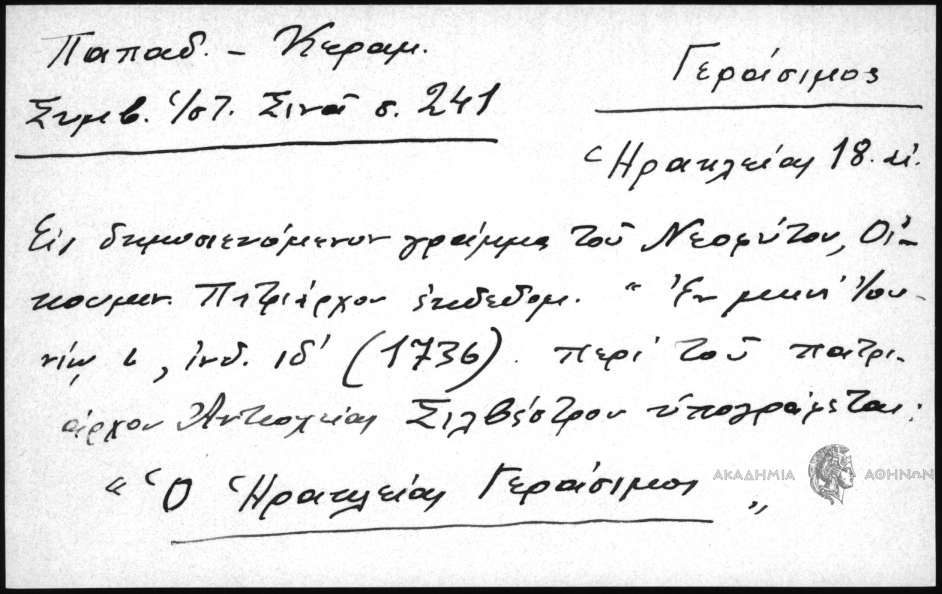 Παπαδ. - Κεραμ.
Συμβ. Ἱστ. Σινᾶ σ. 241
Γεράσιμος
Ἡρακλείας 18. αἰ.
Εἰς δημοσιευόμενον γράμμα τοῦ Νεοφύτου, Οἰ-
κουμεν. Πατριάρχου ἐκδεδομ. " Ἐν μηνὶ Ἰου-
νίῳ ι, ἰνδ. ιδ' (1736). περὶ τοῦ πατρι-
άρχου Ἀντιοχείας Σιλβέστρου ὑπογράφεται:
" Ὁ Ἡρακλείας Γεράσιμος "
ΑΚΑΔΗΜΙΑ ΑΘΗΝΩΝ